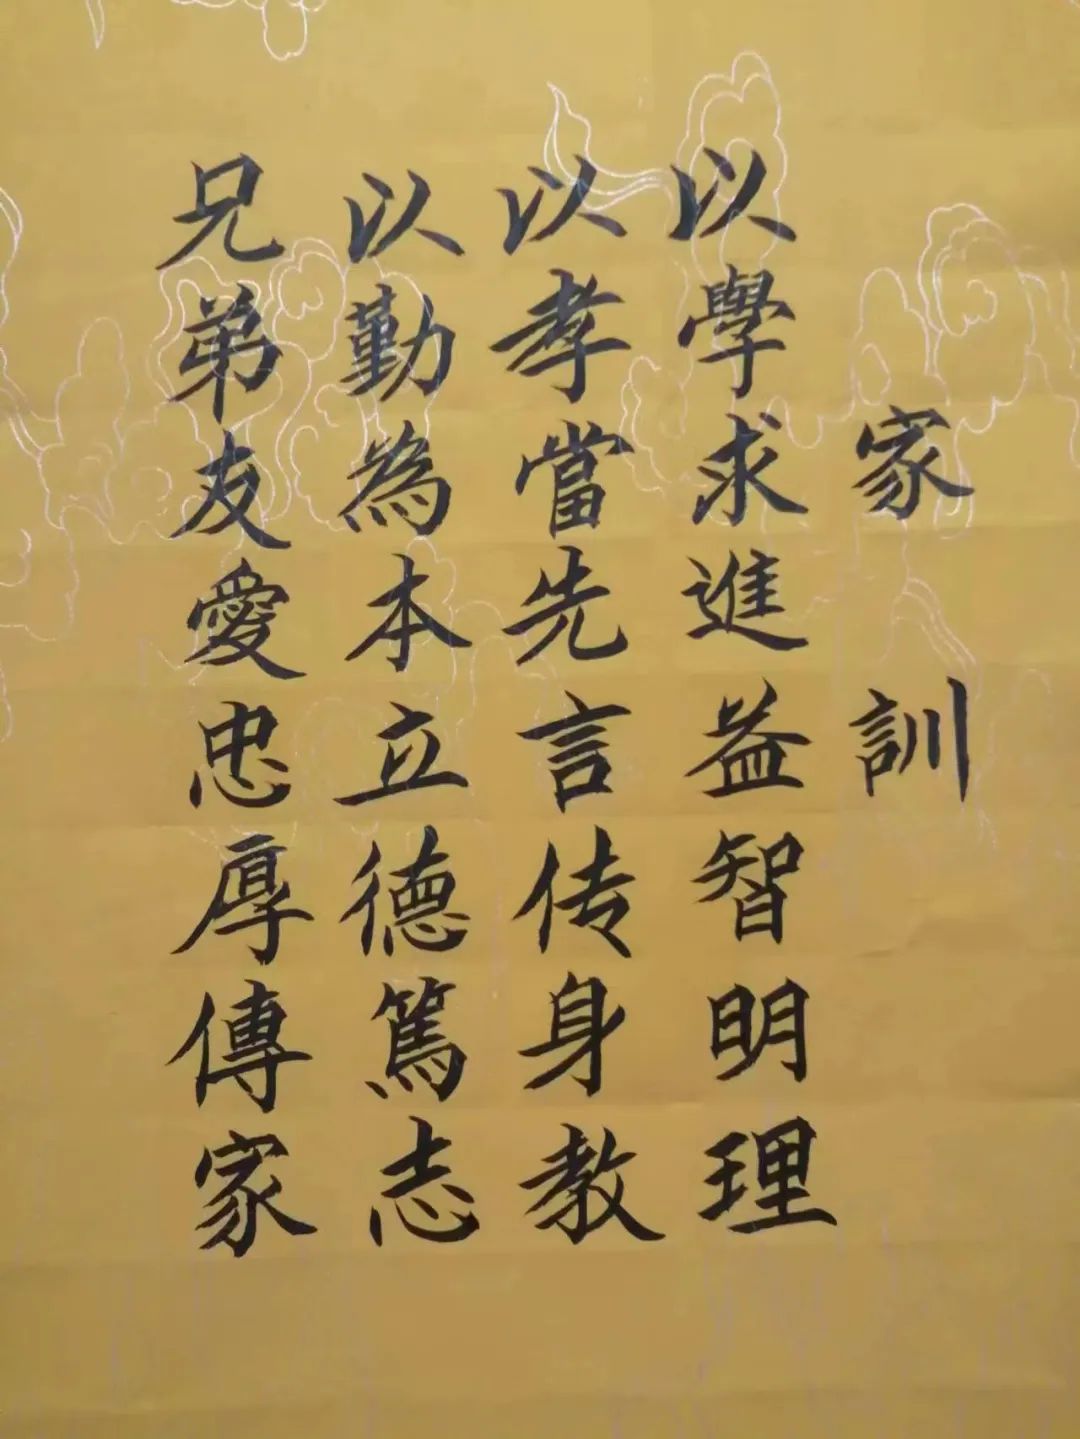 家訓
以學求進益智明理
以孝當先言传身教
以勤為本立德篤志
兄弟友愛忠厚傳家